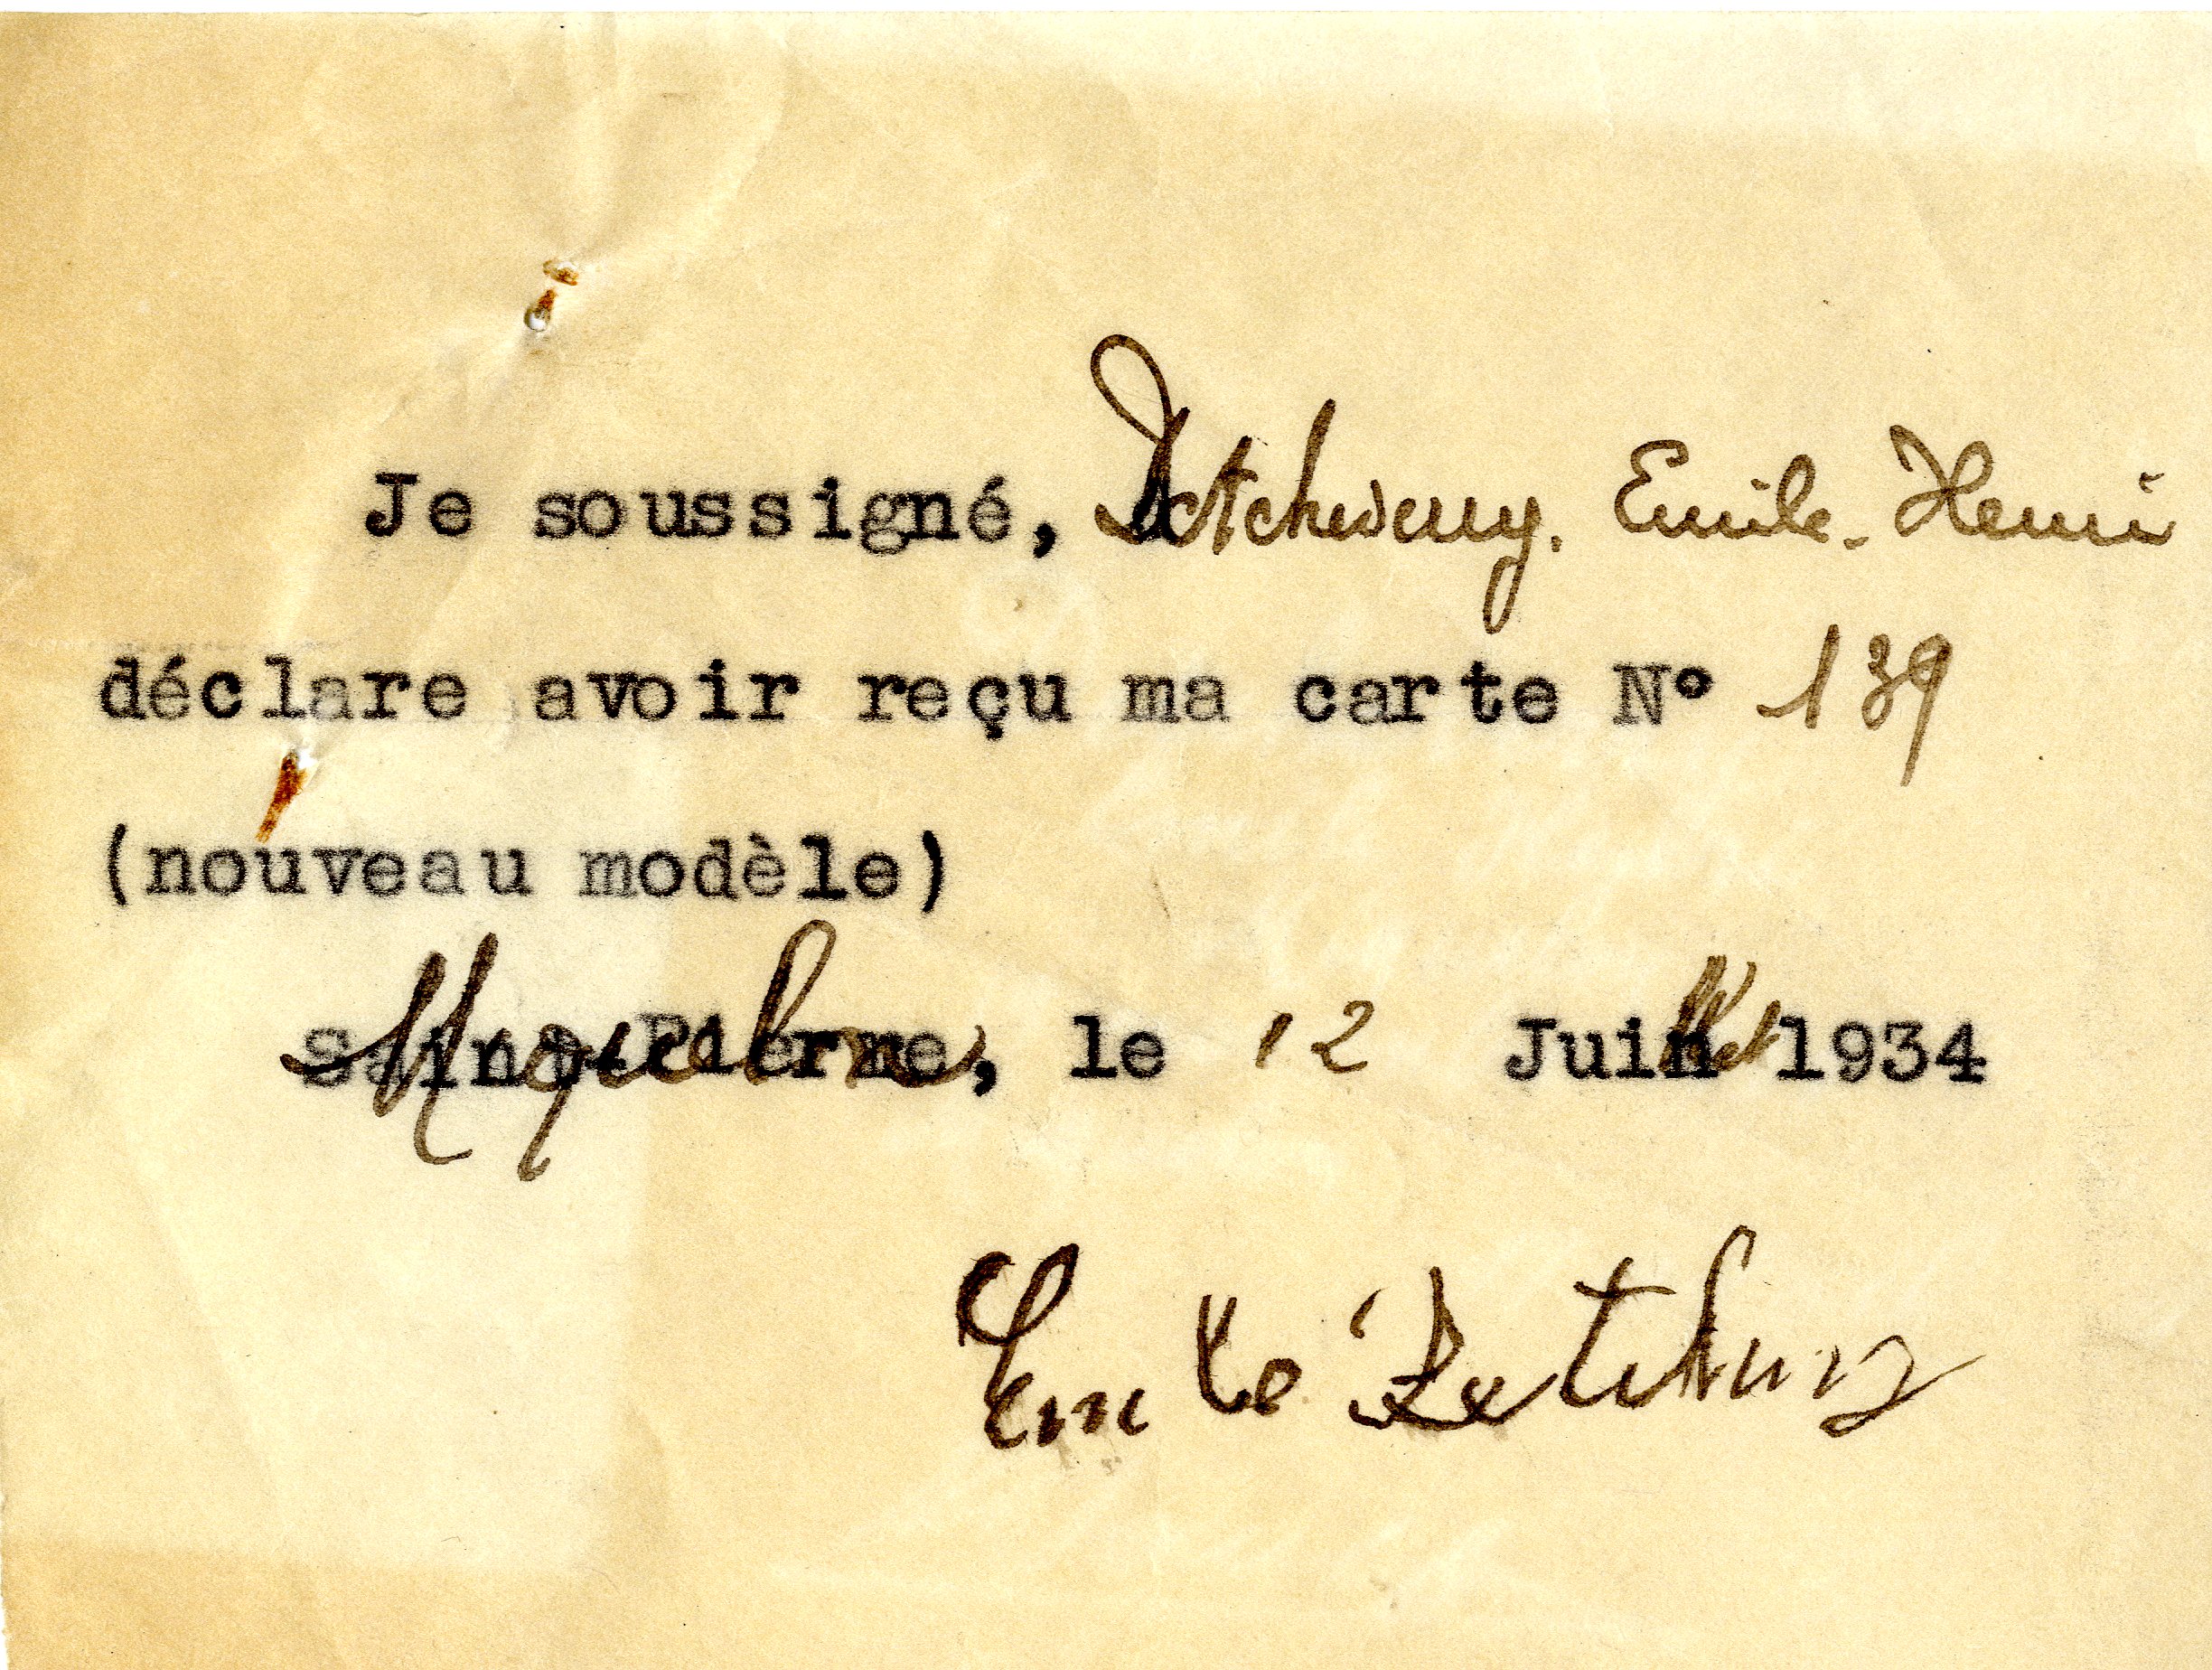 Je soussigné, Detcheverry. Emile. Henri
déclare avoir reçu ma carte Nº 139
(nouveau modèle)
Miquelon, le 12 Juillet 1934
Emile Detcheverry